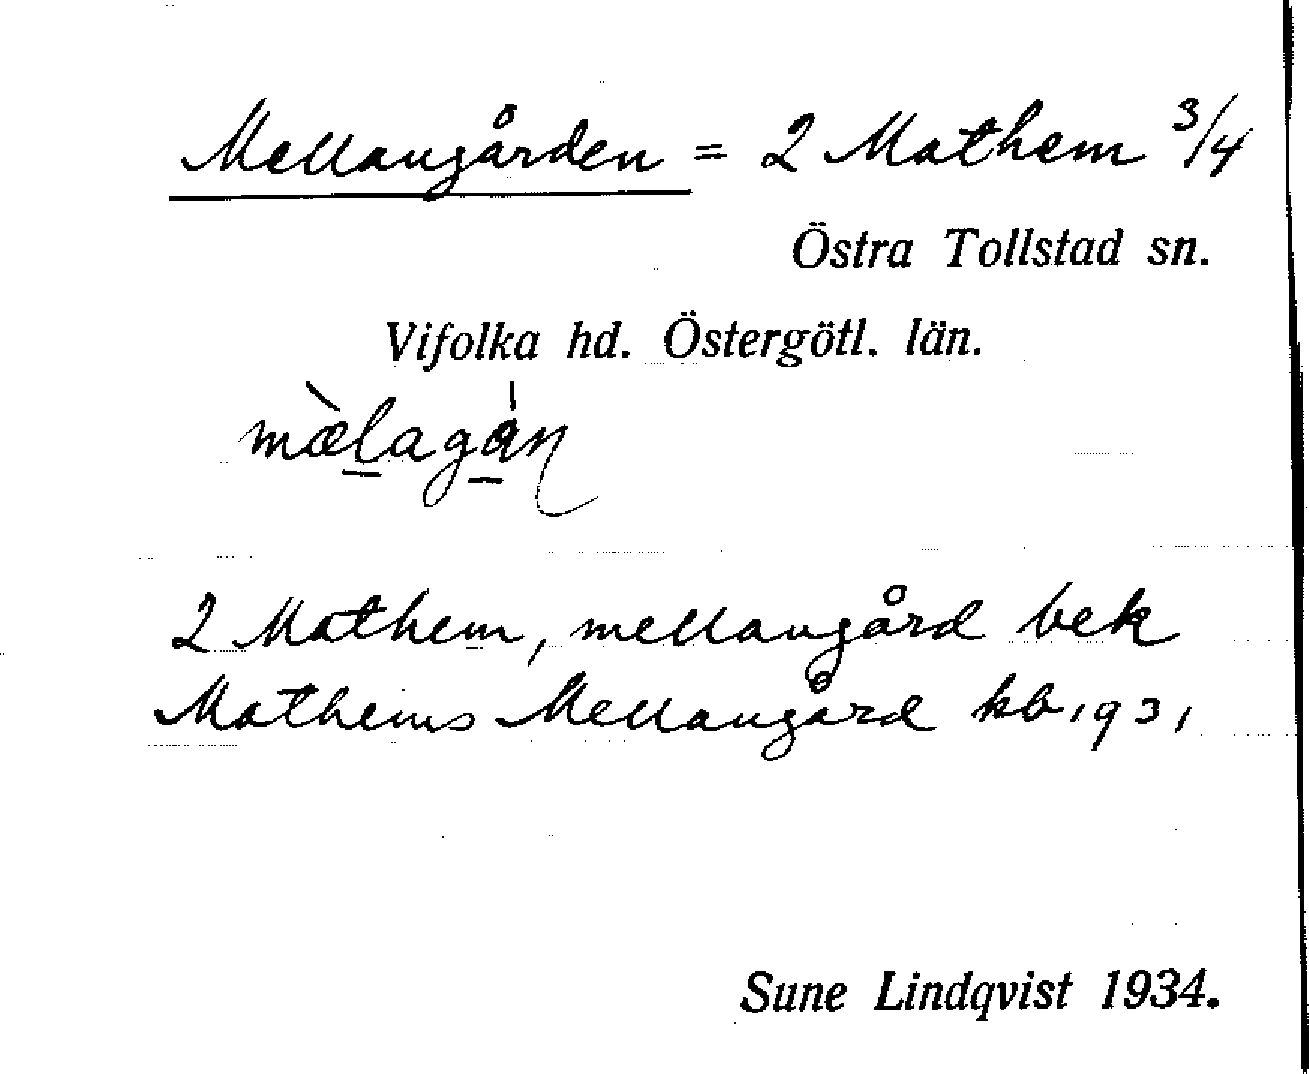 Mellangården = 2 Mathem 3/4
Östra Tollstad sn.
Vifolka hd. Östergötl. län.
2 Mathem, mellangård bek
Mathems Mellangård kb 1931
Sune Lindqvist 1934.